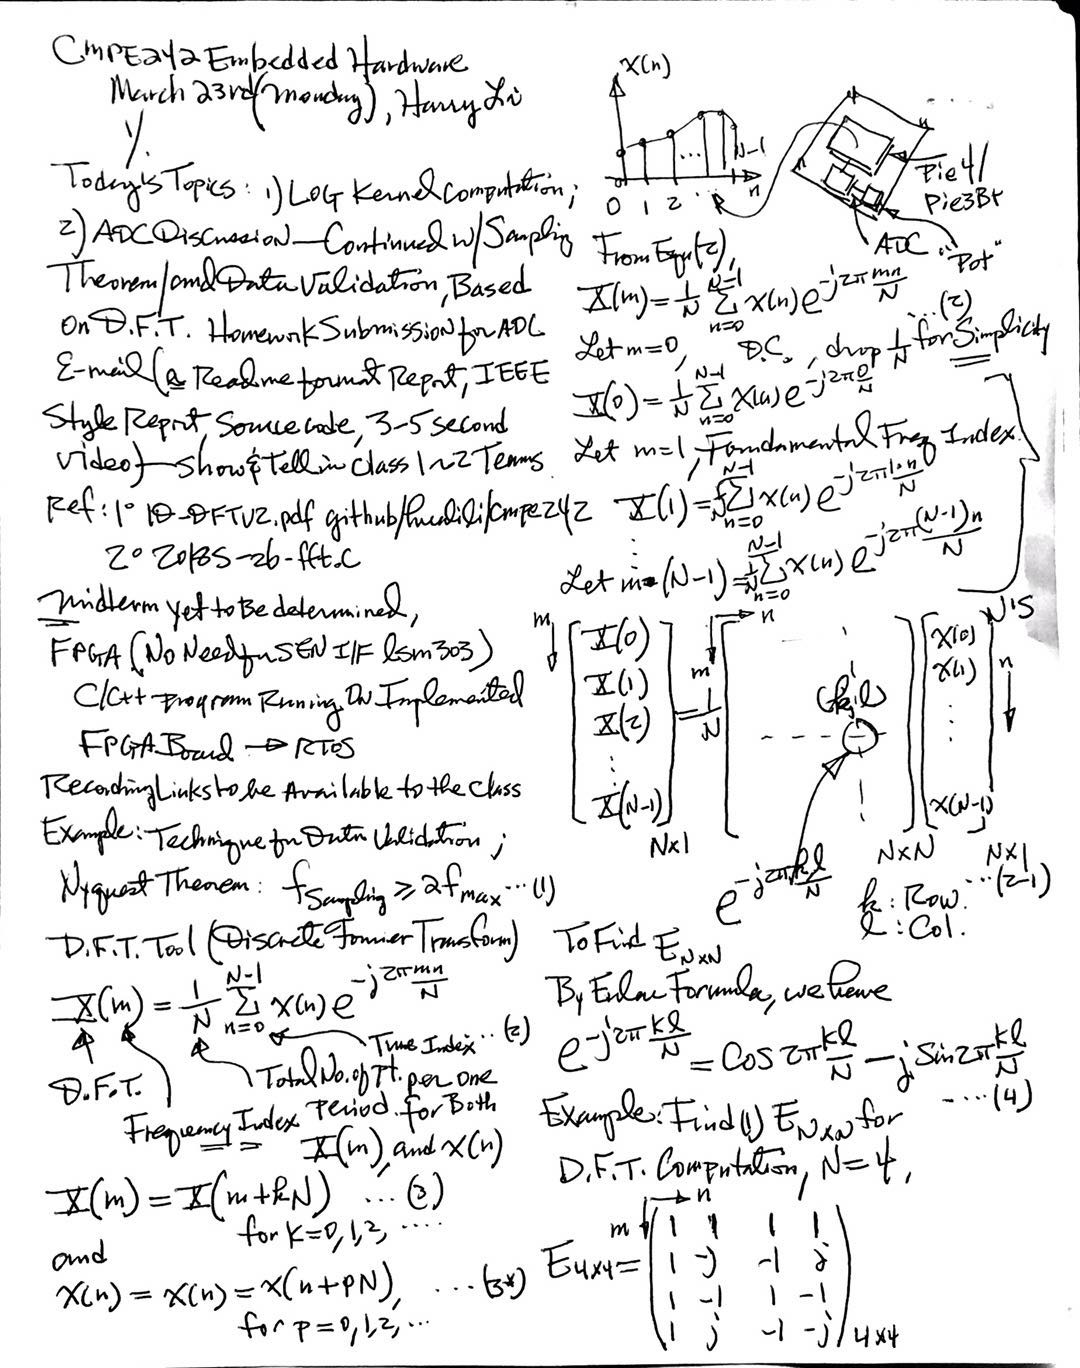 CMPE242 Embedded Hardware
March 23rd (Monday), Harry Li
1/.
Today's Topics: 1) LOG Kernel Computation;
2) ADC Discussion—Continued w/ Sampling
Theorem/and Data Validation, Based
On D.F.T. Homework Submission for ADC
E-mail (a Readme format Report, IEEE
Style Report, Source code, 3-5 second
video) — show & Tell in class 1~2 Teams
Ref: 1° 10-DFTV2.pdf github/hualili/cmpe242
2° 2018S-26-fft.c
Midterm yet to Be determined,
FPGA (No Need for SEN I/F lsm303)
C/C++ program Running On Implemented
FPGA Board → RTOS
Recording Links to be Available to the Class
Example: Technique for Data Validation;
Nyquest Theorem: f_Sampling ≥ 2f_max ... (1)
D.F.T. Tool (Discrete Fourier Transform)
X(m) = 1/N Σ_{n=0}^{N-1} x(n) e^{-j2π mn/N}
Time Index ... (2)
D.F.T.
Total No. of Pt. per one
Period. for Both
Frequency Index
X(m) and x(n)
X(m) = X(m+kN) ... (3)
for k=0,1,2, ....
and
x(n) = x(n) = x(n+pN), ... (3*)
for p=0,1,2, ...
x(n)
... N-1
0 1 2 n
Pie4/
Pie3B+
ADC "Pot"
From Eqn(2),
X(m) = 1/N Σ_{n=0}^{N-1} x(n) e^{-j2π mn/N} ... (2)
Let m=0, D.C., drop 1/N for Simplicity
X(0) = 1/N Σ_{n=0}^{N-1} x(n) e^{-j2π 0/N}
Let m=1, Fundamental Freq Index.
X(1) = 1/N Σ_{n=0}^{N-1} x(n) e^{-j2π 1·n/N}
⋮
Let m=(N-1) = 1/N Σ_{n=0}^{N-1} x(n) e^{-j2π (N-1)n/N}
N'S
m n
X(0) x(0)
X(1) m x(1) n
X(2) = 1/N (k,l)
⋮
X(N-1) x(N-1)
N×1 N×N N×1
e^{-j2π kl/N} ... (2-1)
k: Row.
l: Col.
To Find E_{N×N}
By Euler Formula, we have
e^{-j2π kl/N} = Cos 2π kl/N - j Sin 2π kl/N
.... (4)
Example: Find (1) E_{N×N} for
D.F.T. Computation, N=4,
n
m 1 1 1 1
E4x4 = 1 -j -1 j
1 -1 1 -1
1 j -1 -j 4x4